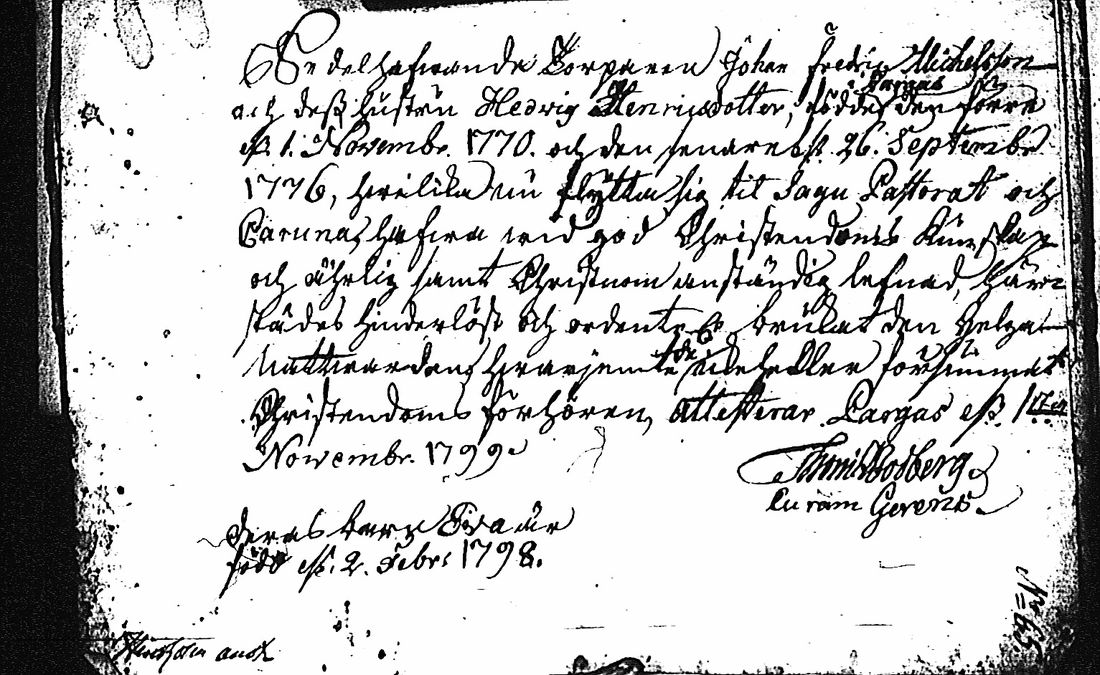 Sedelhafwande Torparen Johan Fredric Michelsson
i Pargas
och deß hustru Hedwig Henricsdotter, födde den förre
d. 1. Novembr. 1770. och den senare d. 26. Septembr
1776, hwilka nu flytta sig til Sagu Pastorat och
Caruna, hafwa wid god Christendoms Kunskap
och ährlig samt Christnom anständig lefnad, härr-
städes hinderlöst och ordentel. brukat den Helga
Nattwarden, hwarjemte de icke heller försummat
Christendoms förhören, attesterar Pargas d. 1
Novembr. 1799.
Thom: Boberg
Curam Gerens.
deras barn Eva är
född d. 2. Febr. 1798.
No 65